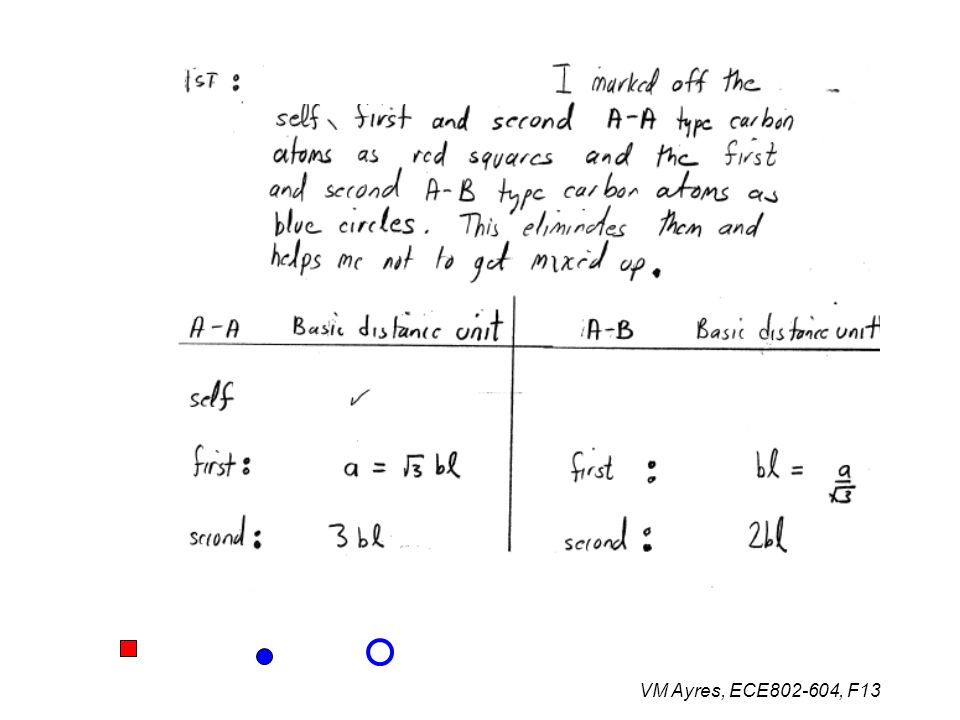 1ST : I marked off the
self, first and second A-A type carbon
atoms as red squares and the first
and second A-B type carbon atoms as
blue circles. This eliminates them and
helps me not to get mixed up.
A-A Basic distance unit A-B Basic distance unit
self ✓
first: a = √3 bl first : bl = a/√3
second: 3 bl second: 2bl
VM Ayres, ECE802-604, F13